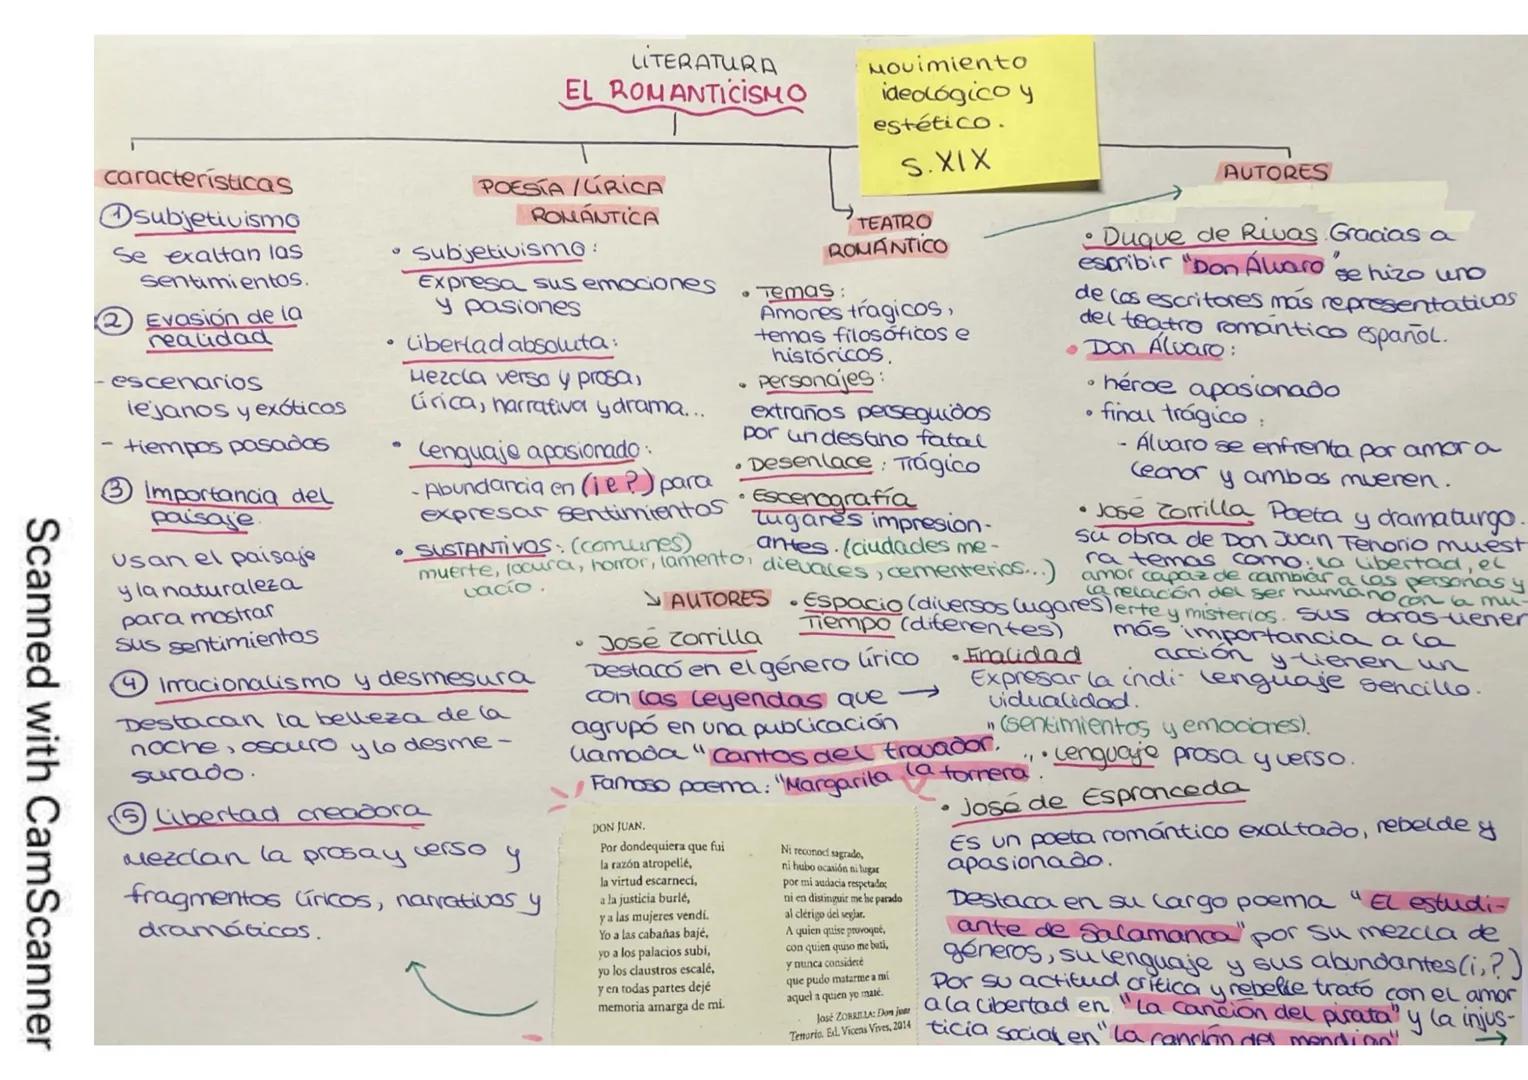 LITERATURA
EL ROMANTICISMO
Movimiento
ideológico y
estético.
S. XIX
características
① subjetivismo
Se exaltan los
sentimientos.
② Evasión de la
realidad
- escenarios
lejanos y exóticos
- tiempos pasados
③ Importancia del
paisaje.
usan el paisaje
y la naturaleza
para mostrar
sus sentimientos
④ Irracionalismo y desmesura
Destacan la belleza de la
noche, oscuro y lo desme-
surado.
⑤ Libertad creadora
Mezclan la prosa y verso y
fragmentos líricos, narrativos y
dramáticos.
POESÍA / LÍRICA
ROMÁNTICA
• subjetivismo:
Expresa sus emociones
y pasiones
• Libertad absoluta:
Mezcla verso y prosa,
lírica, narrativa y drama...
• Lenguaje apasionado:
- Abundancia en (¡ e ?) para
expresar sentimientos
• SUSTANTIVOS: (comunes)
muerte, locura, horror, lamento,
vacío.
TEATRO
ROMÁNTICO
• Temas:
Amores trágicos,
temas filosóficos e
históricos.
• personajes:
extraños perseguidos
por un destino fatal
• Desenlace: Trágico
• Escenografía
Lugares impresion-
antes. (ciudades me-
dievales, cementerios...)
• Espacio (diversos lugares)
Tiempo (diferentes)
• Finalidad
Expresar la indi-
vidualidad.
(sentimientos y emociones).
• Lenguaje prosa y verso.
AUTORES
• José Zorrilla
Destacó en el género lírico
con las leyendas que
agrupó en una publicación
llamada "Cantos del trovador."
Famoso poema: "Margarita la tornera".
DON JUAN.
Por dondequiera que fui
la razón atropellé,
la virtud escarnecí,
a la justicia burlé,
y a las mujeres vendí.
Yo a las cabañas bajé,
yo a los palacios subí,
yo los claustros escalé,
y en todas partes dejé
memoria amarga de mí.
Ni reconocí sagrado,
ni hubo ocasión ni lugar
por mi audacia respetado;
ni en distinguir me he parado
al clérigo del seglar.
A quien quise provoqué,
con quien quiso me batí,
y nunca consideré
que pudo matarme a mí
aquel a quien yo maté.
José ZORRILLA: Don Juan
Tenorio. Ed. Vicens Vives, 2014
AUTORES
• Duque de Rivas. Gracias a
escribir "Don Álvaro" se hizo uno
de los escritores más representativos
del teatro romántico español.
• Don Álvaro:
• héroe apasionado
• final trágico:
- Álvaro se enfrenta por amor a
Leonor y ambos mueren.
• José Zorrilla Poeta y dramaturgo.
su obra de Don Juan Tenorio muest-
ra temas como: la libertad, el
amor capaz de cambiar a las personas y
la relación del ser humano con la mu-
erte y misterios. Sus obras tienen
más importancia a la
acción y tienen un
lenguaje sencillo.
• José de Espronceda
Es un poeta romántico exaltado, rebelde y
apasionado.
Destaca en su largo poema "El estudi-
ante de Salamanca" por su mezcla de
géneros, su lenguaje y sus abundantes (¡,?)
Por su actitud crítica y rebelde trató con el amor
a la libertad en "La canción del pirata" y la injus-
ticia social en "La canción del mendigo"
Scanned with CamScanner